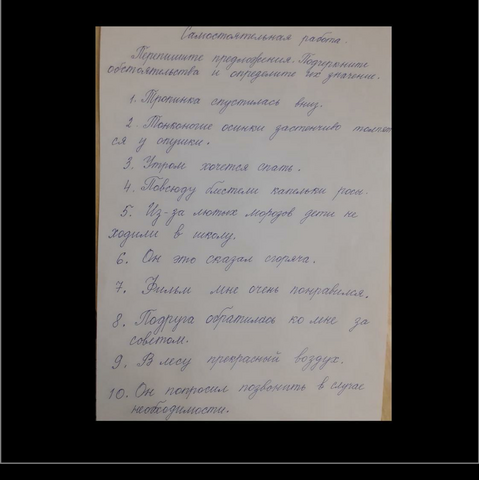 Самостоятельная работа.
Перепишите предложения. Подчеркните
обстоятельства и определите их значение.
1. Тропинка спустилась вниз.
2. Тонконогие осинки застенчиво толпят
ся у опушки.
3. Утром хочется спать.
4. Повсюду блестели капельки росы.
5. Из-за лютых морозов дети не
ходили в школу.
6. Он это сказал сгоряча.
7. Фильм мне очень понравился.
8. Подруга обратилась ко мне за
советом.
9. В лесу прекрасный воздух.
10. Он попросил позвонить в случае
необходимости.